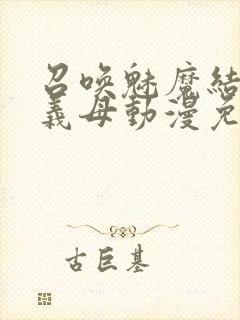 召喚魅魔結
義母動漫免
古巨基